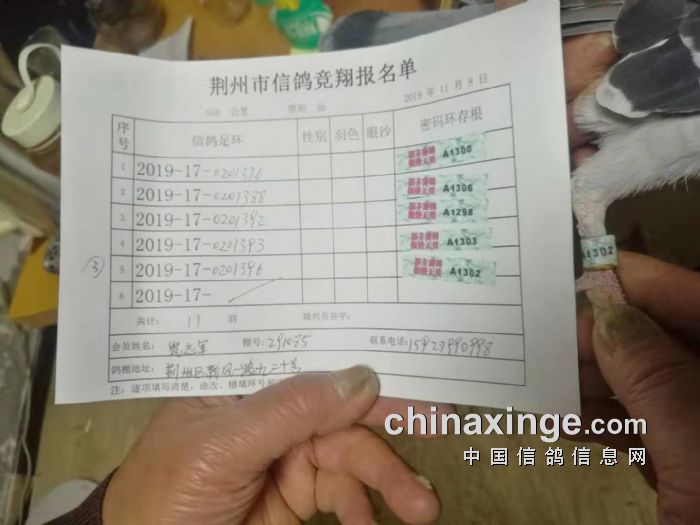 荆州市信鸽竞翔报名单
550 公里 荥阳 站 2019 年 11 月 8 日
序号 信鸽足环 性别 羽色 眼沙 密码环存根
1 2019-17-0201376 A1300
2 2019-17-0201388 A1306
3 2019-17-0201392 A1298
4 2019-17-0201393 A1303
③ 5 2019-17-0201396 A1302
6 2019-17-
共计: 11 羽 裁判员签字:
会员姓名: 志军 棚号: 291085 联系电话: 15927990998
鸽棚地址: 荆州区
注: 逐项填写清楚, 涂改、错填环号
A1302
chinaxinge.com
中国信鸽信息网